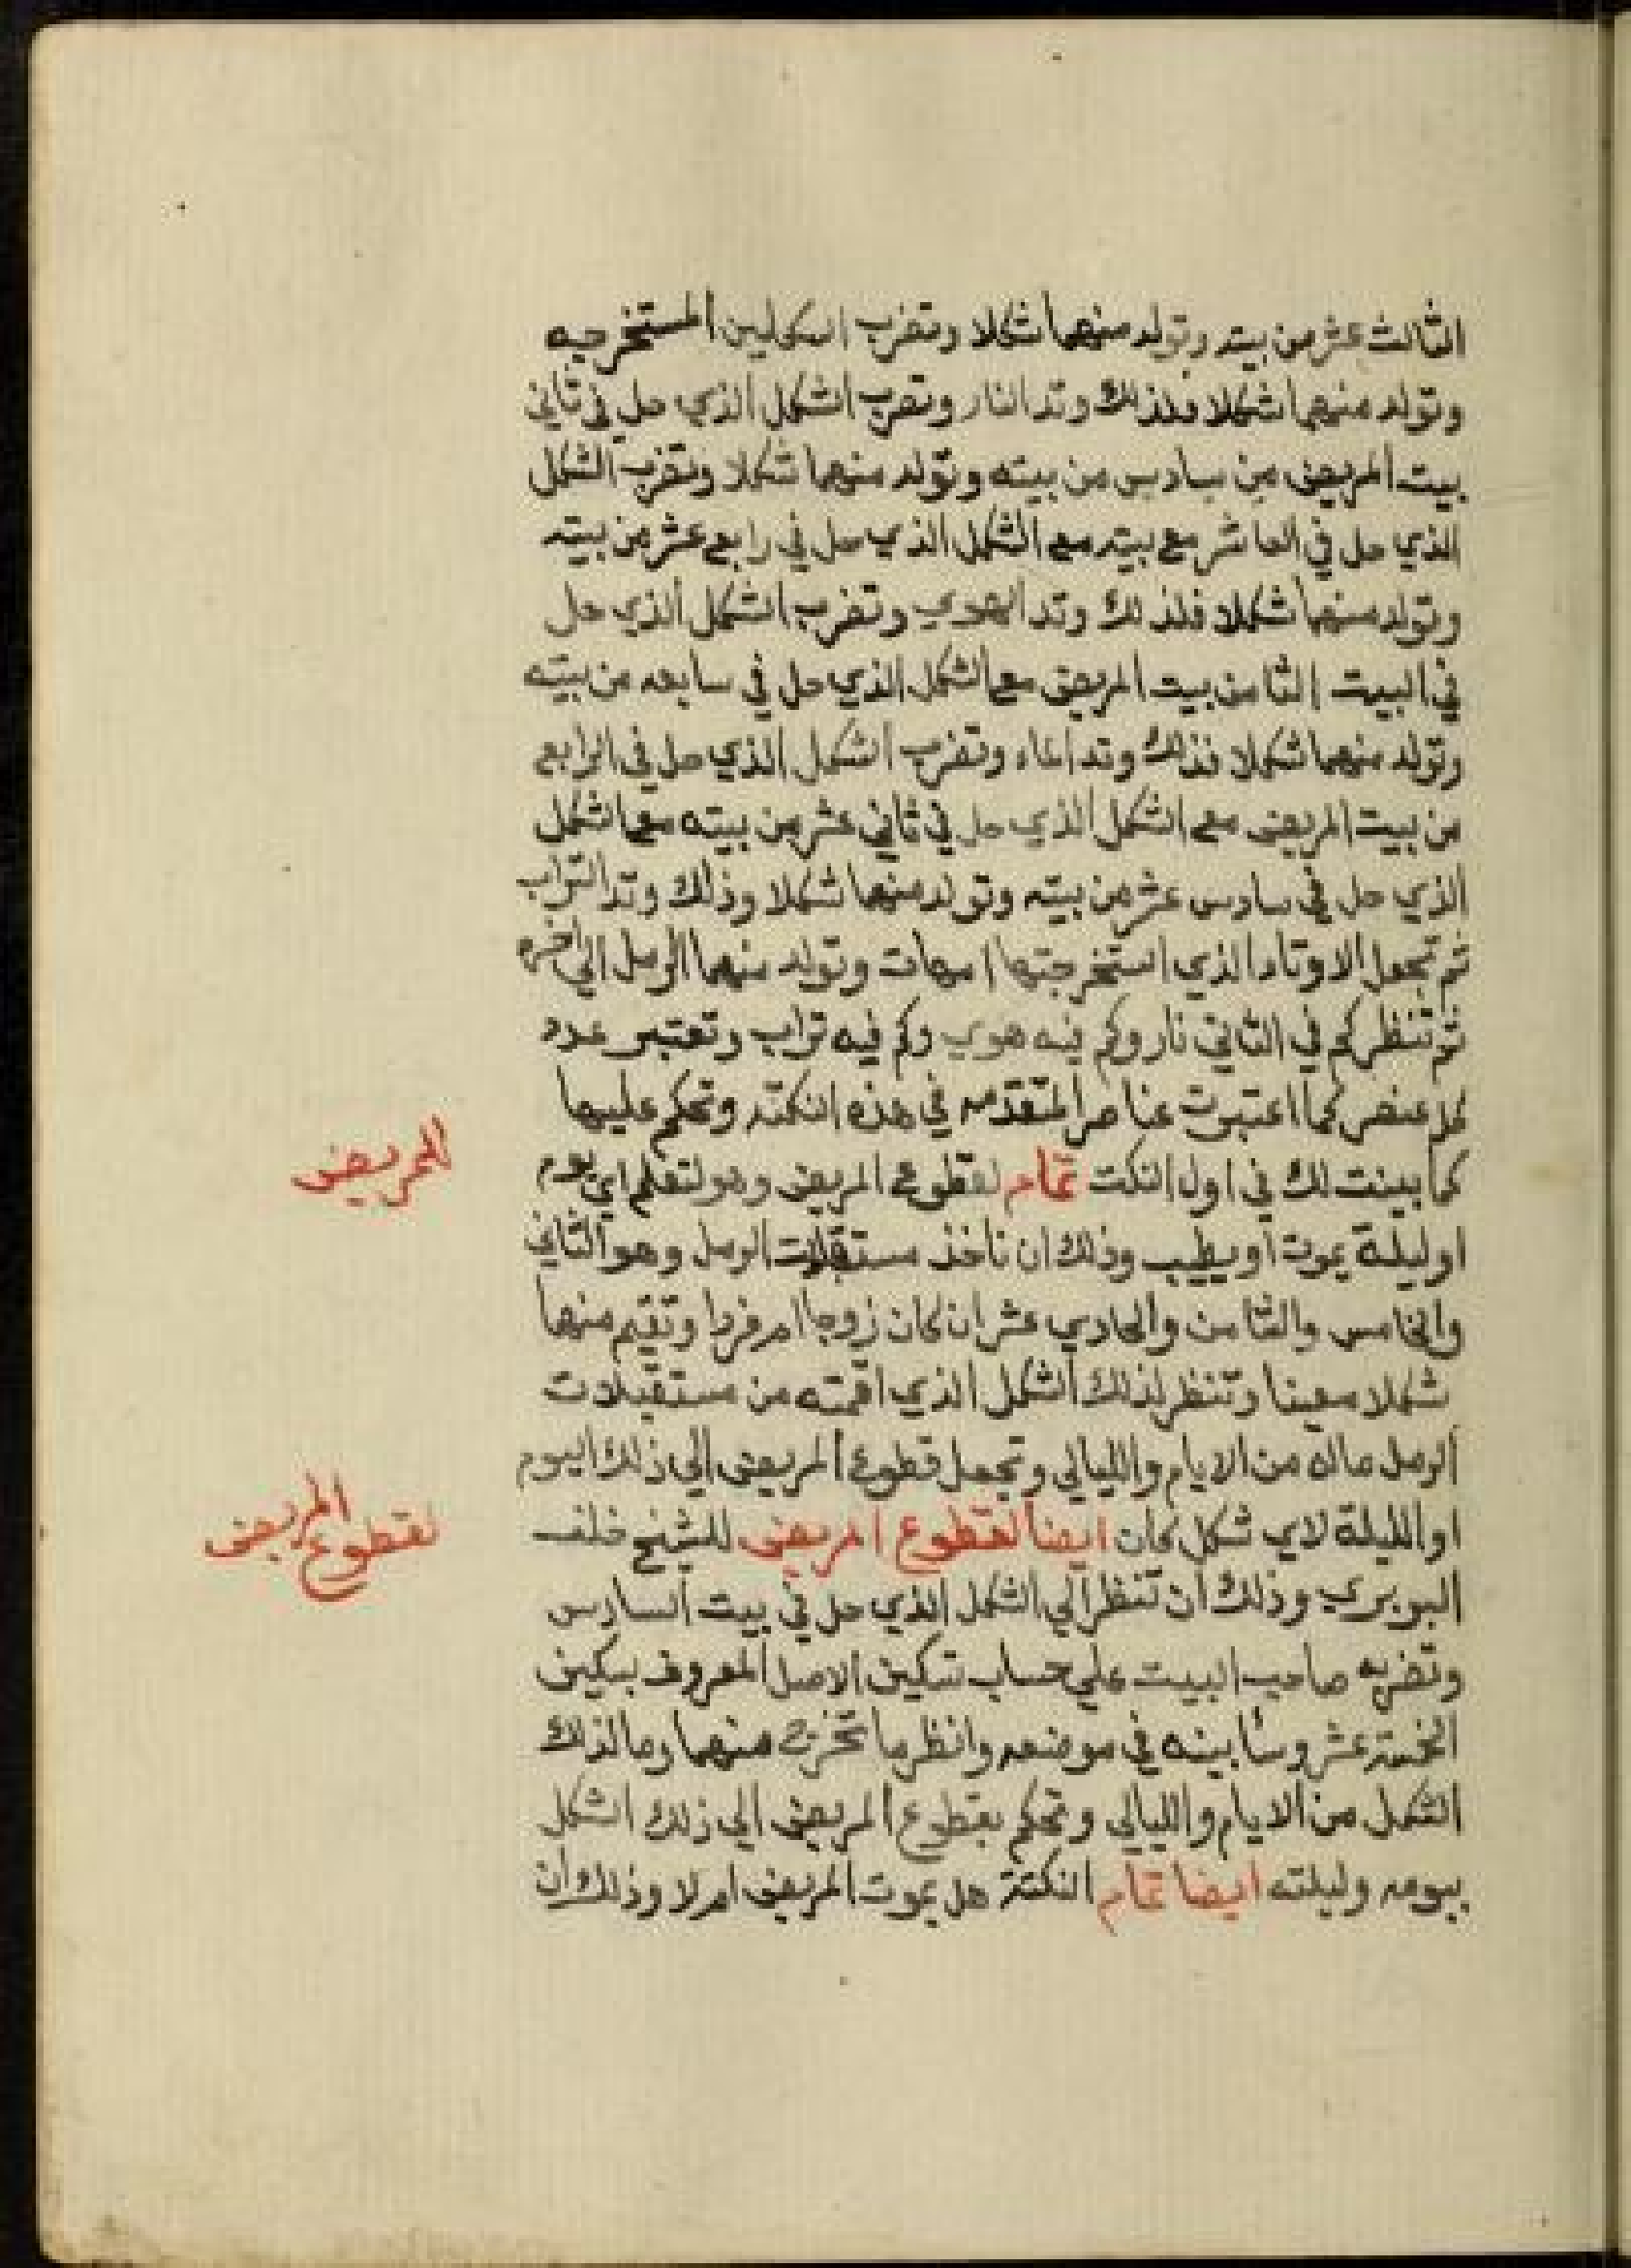 الثالث عشر من بيته وتولد منهما شكلا وتضرب الشكلين المستخرجيه
وتولد منهما شكلا فلذلك وتد النار وتضرب الشكل الذي حل في تاني
بيت المريض من سادس من بيته وتولد منهما شكلا وتضرب الشكل
الذي حل في العاشر مع بيته مع الشكل الذي حل في رابع عشر من بيته
وتولد منهما شكلا فلذلك وتد الهوي وتضرب الشكل الذي حل
في البيت الثامن بيت المريض مع الشكل الذي حل في سابعه من بيته
وتولد منهما شكلا فذلك وتد الماء وتضرب الشكل الذي حل في الرابع
من بيت المريض مع الشكل الذي حل في ثاني عشر من بيته مع الشكل
الذي حل في سادس عشر من بيته وتولد منهما شكلا وذلك وتد التراب
ثم تجعل الاوتاد الذي استخرجتها امهات وتولد منهما الرمل الي اخره
ثم تنظر كم في الثاني نار وكم فيه هوي وكم فيه تراب وتعتبر عدد
كل عنصر كما اعتبرت عناصر المتقدمه في هذه النكته وتحكم عليها
كما بينت لك في اول النكت تمام لقطوع المريض وهو لتعلم اي يوم
للمريض
او ليلة يموت او يطيب وذلك ان تاخذ مستقبلات الرمل وهو الثاني
والخامس والثامن والحادي عشر ان كان زوجا ام فردا وتقيم منها
شكلا معينا وتنظر لذلك الشكل الذي اقمته من مستقبلات
الرمل ماله من الايام والليالي وتجعل قطوع المريض الي ذلك اليوم
او الليلة لاي شكل كان ايضا لقطوع المريض للشيخ خلف
لقطوع المريض
البربري وذلك ان تنظر الي الشكل الذي حل في بيت السادس
وتضربه صاحب البيت علي حساب تسكين الاصل المعروف بسكين
الخمسة عشر وسأبينه في موضعه وانظر ما تخرج منهما وما لذلك
الشكل من الايام والليالي وتحكم بقطوع المريض الي ذلك الشكل
بيومه وليلته ايضا تمام النكتة هل يموت المريض ام لا وذلك ان